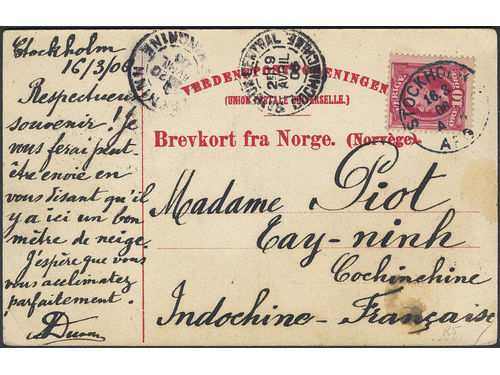 Stockholm
16/3/06
Respectueux
souvenir! Je
vous ferai peut-
être envie en
vous disant qu'il
y a ici un bon
mètre de neige.
J'espère que vous
vous acclimatez
parfaitement.
VERDENSPOSTFORENINGEN
(UNION POSTALE UNIVERSELLE.)
Brevkort fra Norge. (Norvège).
Madame Piot
Tay-ninh
Cochinchine
Indochine-Française
COCHINCHINE
AVRIL
06
STOCKHOLM
16 3
06
SVERIGE
10